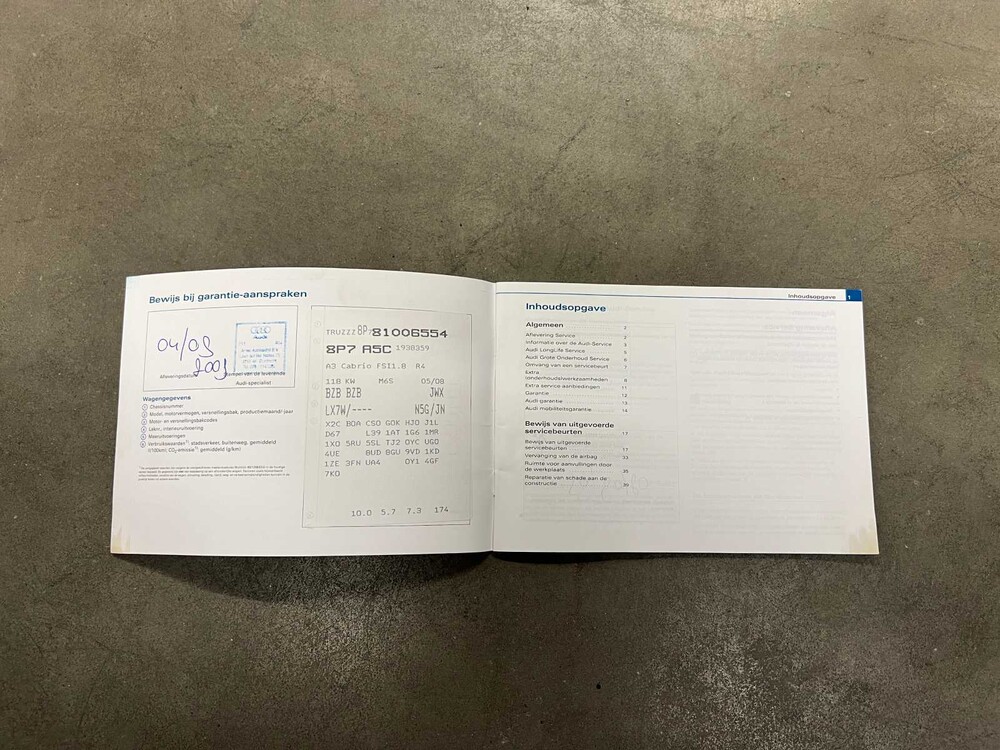 Bewijs bij garantie-aanspraken
04/09
2009
Afleveringsdatum
Stempel van de leverende
Audi-specialist
Wagengegevens
① Chassisnummer
② Model, motorvermogen, versnellingsbak, productiemaand/-jaar
③ Motor- en versnellingsbakcodes
④ Laknr., interieuruitvoering
⑤ Meeruitvoeringen
⑥ Verbruikswaarden¹⁾: stadsverkeer, buitenweg, gemiddeld
(l/100km); CO₂-emissie¹⁾: gemiddeld (g/km)
TRUZZZ8P781006554
8P7 A5C 1938359
A3 Cabrio FSI1.8 R4
118 KW M6S 05/08
BZB BZB JWX
LX7W/---- N5G/JN
X2C B0A CS0 G0K HJ0 J1L
D67 L39 1AT 1G6 1MR
1X0 5RU 5SL TJ2 0YC UG0
4UE 8UD 8GU 9VD 1KD
1ZE 3FN UA4 0Y1 4GF
7K0
10.0 5.7 7.3 174
Inhoudsopgave 1
Inhoudsopgave
Algemeen 2
Aflevering Service 2
Informatie over de Audi-Service 3
Audi LongLife Service 5
Audi Grote Onderhoud Service 6
Omvang van een servicebeurt 7
Extra
(onderhouds)werkzaamheden 8
Extra service aanbiedingen 11
Garantie 12
Audi garantie 13
Audi mobiliteitsgarantie 14
Bewijs van uitgevoerde
servicebeurten 17
Bewijs van uitgevoerde
servicebeurten 17
Vervanging van de airbag 33
Ruimte voor aanvullingen door
de werkplaats 35
Reparatie van schade aan de
constructie 39